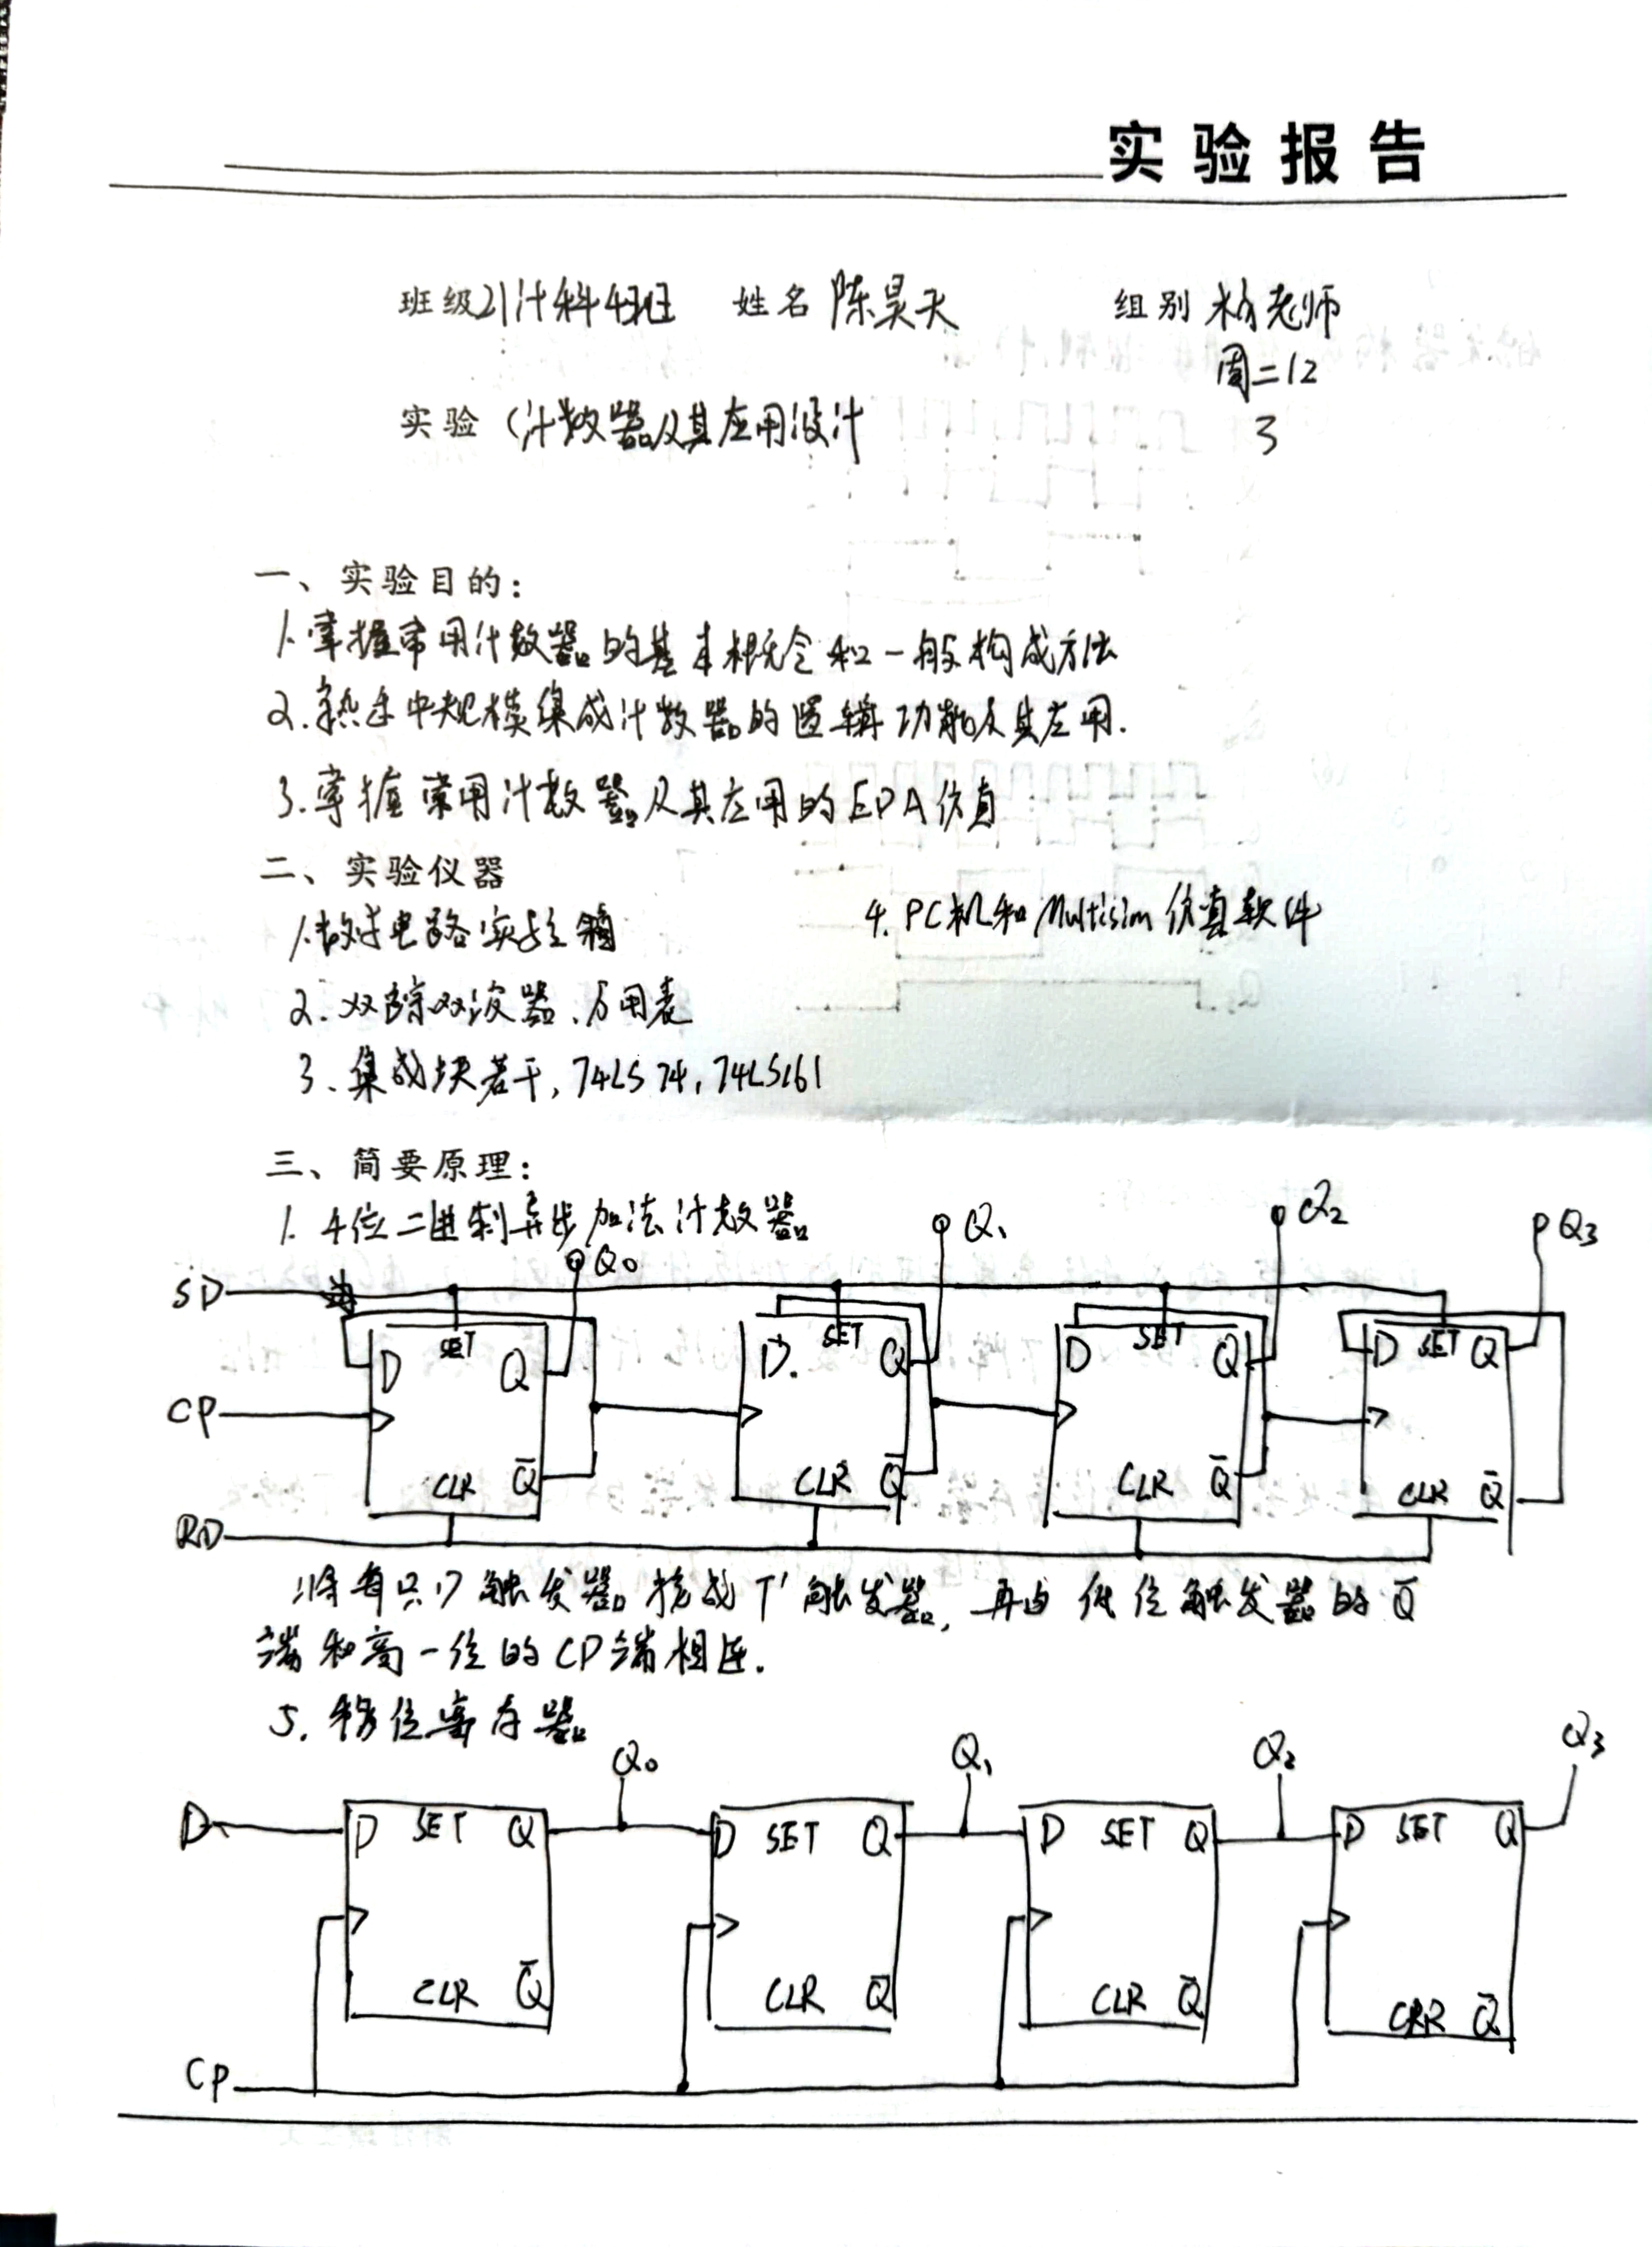 实验报告
班级21计科4班 姓名 陈昊天 组别 杨老师
周二12
实验 (计数器及其应用设计 3
一、实验目的：
1.掌握常用计数器的基本概念和一般构成方法
2.熟悉中规模集成计数器的逻辑功能及其应用.
3.掌握常用计数器及其应用的EDA仿真
二、实验仪器
1.数字电路实验箱 4. PC机和Multisim仿真软件
2.双踪双波器、万用表
3、集成块若干, 74LS74, 74LS161
三、简要原理：
1. 4位二进制异步加法计数器
Q0 Q1 Q2 Q3
SD
SET SET SET SET
D Q D. Q D Q D Q
CP
CLR Q̄ CLR Q̄ CLR Q̄ CLR Q̄
RD
将每只D触发器接成T'触发器, 再由低位触发器的Q̄
端和高一位的CP端相连.
5. 移位寄存器
Q0 Q1 Q2 Q3
D D SET Q D SET Q D SET Q D SET Q
CLR Q̄ CLR Q̄ CLR Q̄ CRR Q̄
CP